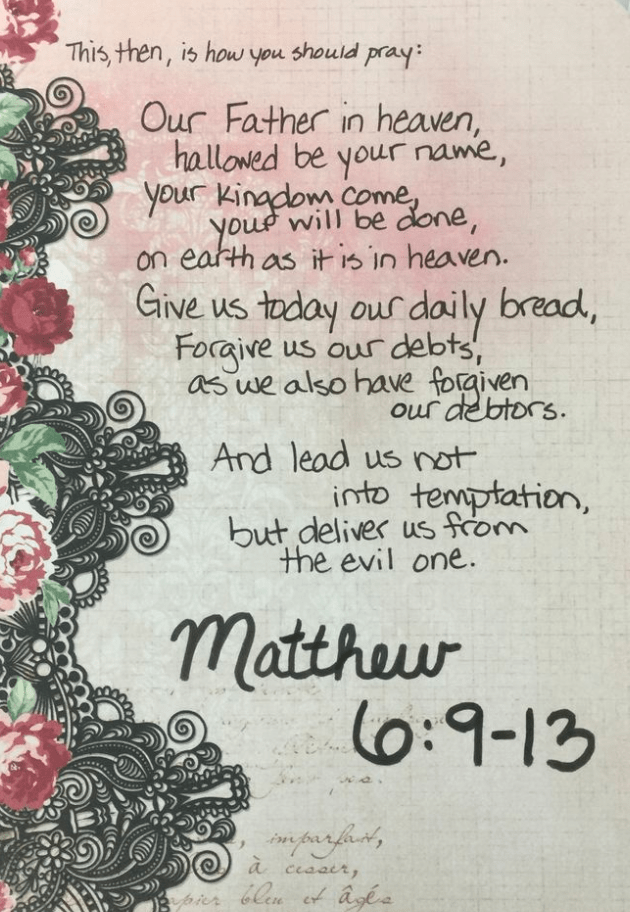 This, then, is how you should pray:
Our Father in heaven,
hallowed be your name,
your kingdom come,
your will be done,
on earth as it is in heaven.
Give us today our daily bread,
Forgive us our debts,
as we also have forgiven
our debtors.
And lead us not
into temptation,
but deliver us from
the evil one.
Matthew
6:9-13
imparfait,
à cesser,
papier bleu et âgés